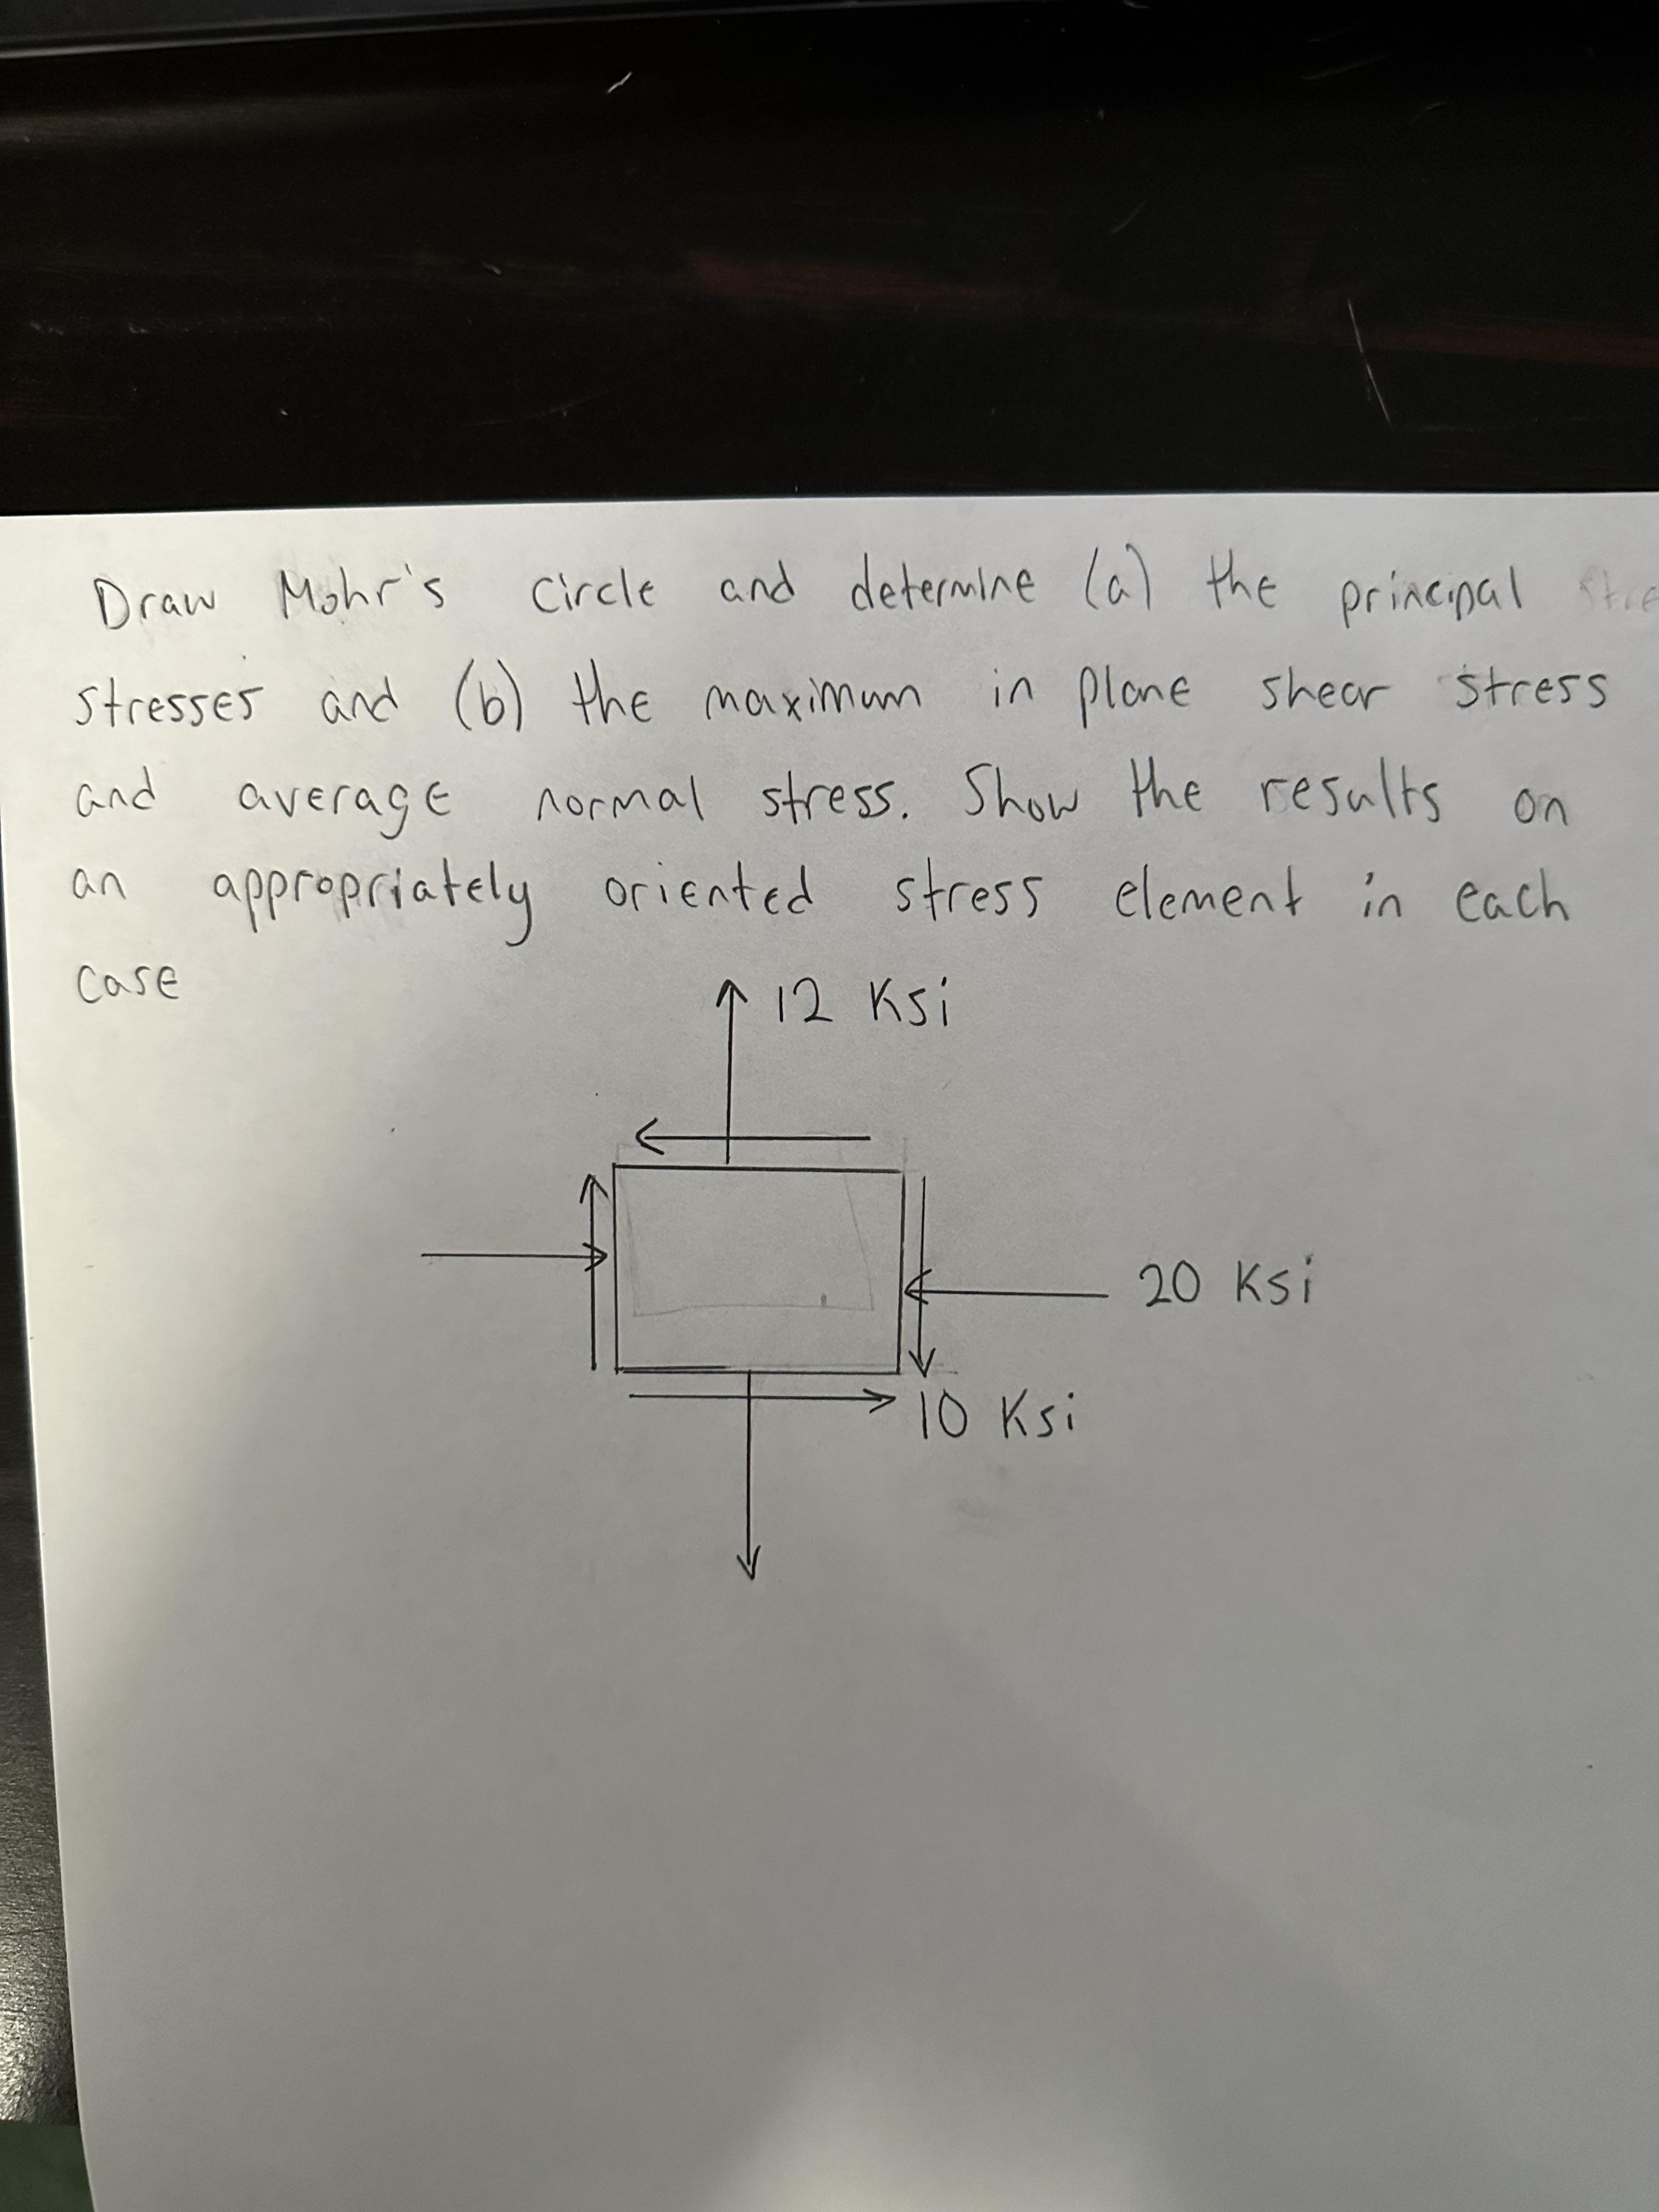 Draw Mohr's circle and determine (a) the principal
stresses and (b) the maximum in plane shear stress
and average normal stress. Show the results on
an appropriately oriented stress element in each
case
12 Ksi
20 Ksi
10 Ksi